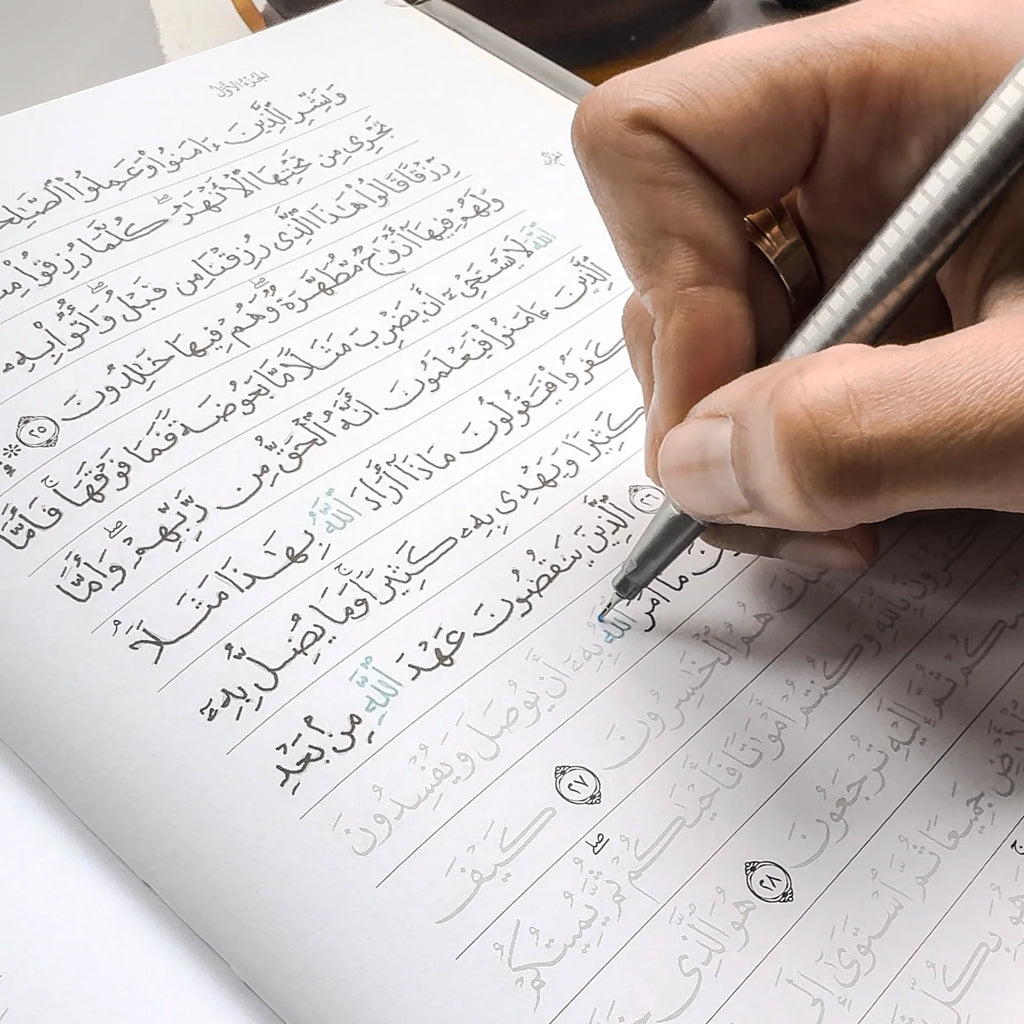 الجزء الأول
وَبَشِّرِ ٱلَّذِينَ ءَامَنُوا۟ وَعَمِلُوا۟ ٱلصَّـٰلِحَـ
تَجْرِى مِن تَحْتِهَا ٱلْأَنْهَـٰرُ ۖ كُلَّمَا رُزِقُوا۟ مِنْـ
رِّزْقًا قَالُوا۟ هَـٰذَا ٱلَّذِى رُزِقْنَا مِن قَبْلُ ۖ وَأُتُوا۟ بِهِۦ
وَلَهُمْ فِيهَآ أَزْوَٰجٌ مُّطَهَّرَةٌ ۖ وَهُمْ فِيهَا خَـٰلِدُونَ ٢٥ *
ٱللَّهَ لَا يَسْتَحْىِۦٓ أَن يَضْرِبَ مَثَلًا مَّا بَعُوضَةً فَمَا فَوْقَهَا ۚ فَأَمَّا
ٱلَّذِينَ ءَامَنُوا۟ فَيَعْلَمُونَ أَنَّهُ ٱلْحَقُّ مِن رَّبِّهِمْ ۖ وَأَمَّا
كَفَرُوا۟ فَيَقُولُونَ مَاذَآ أَرَادَ ٱللَّهُ بِهَـٰذَا مَثَلًا ۘ
كَثِيرًا وَيَهْدِى بِهِۦ كَثِيرًا ۚ وَمَا يُضِلُّ بِهِۦٓ
٢٦ ٱلَّذِينَ يَنقُضُونَ عَهْدَ ٱللَّهِ مِنۢ بَعْدِ
ـنَ مَآ أَمَرَ ٱللَّهُ بِهِۦٓ أَن يُوصَلَ وَيُفْسِدُونَ
ـئِكَ هُمُ ٱلْخَـٰسِرُونَ ٢٧ كَيْفَ
ـكْفُرُونَ بِٱللَّهِ وَكُنتُمْ أَمْوَٰتًا فَأَحْيَـٰكُمْ ۖ ثُمَّ يُمِيتُكُمْ
ـكُمْ ثُمَّ إِلَيْهِ تُرْجَعُونَ ٢٨ هُوَ ٱلَّذِى خَلَـ
ـأَرْضِ جَمِيعًا ثُمَّ ٱسْتَوَىٰٓ إِلَى
هُوَ بِكُلِّ